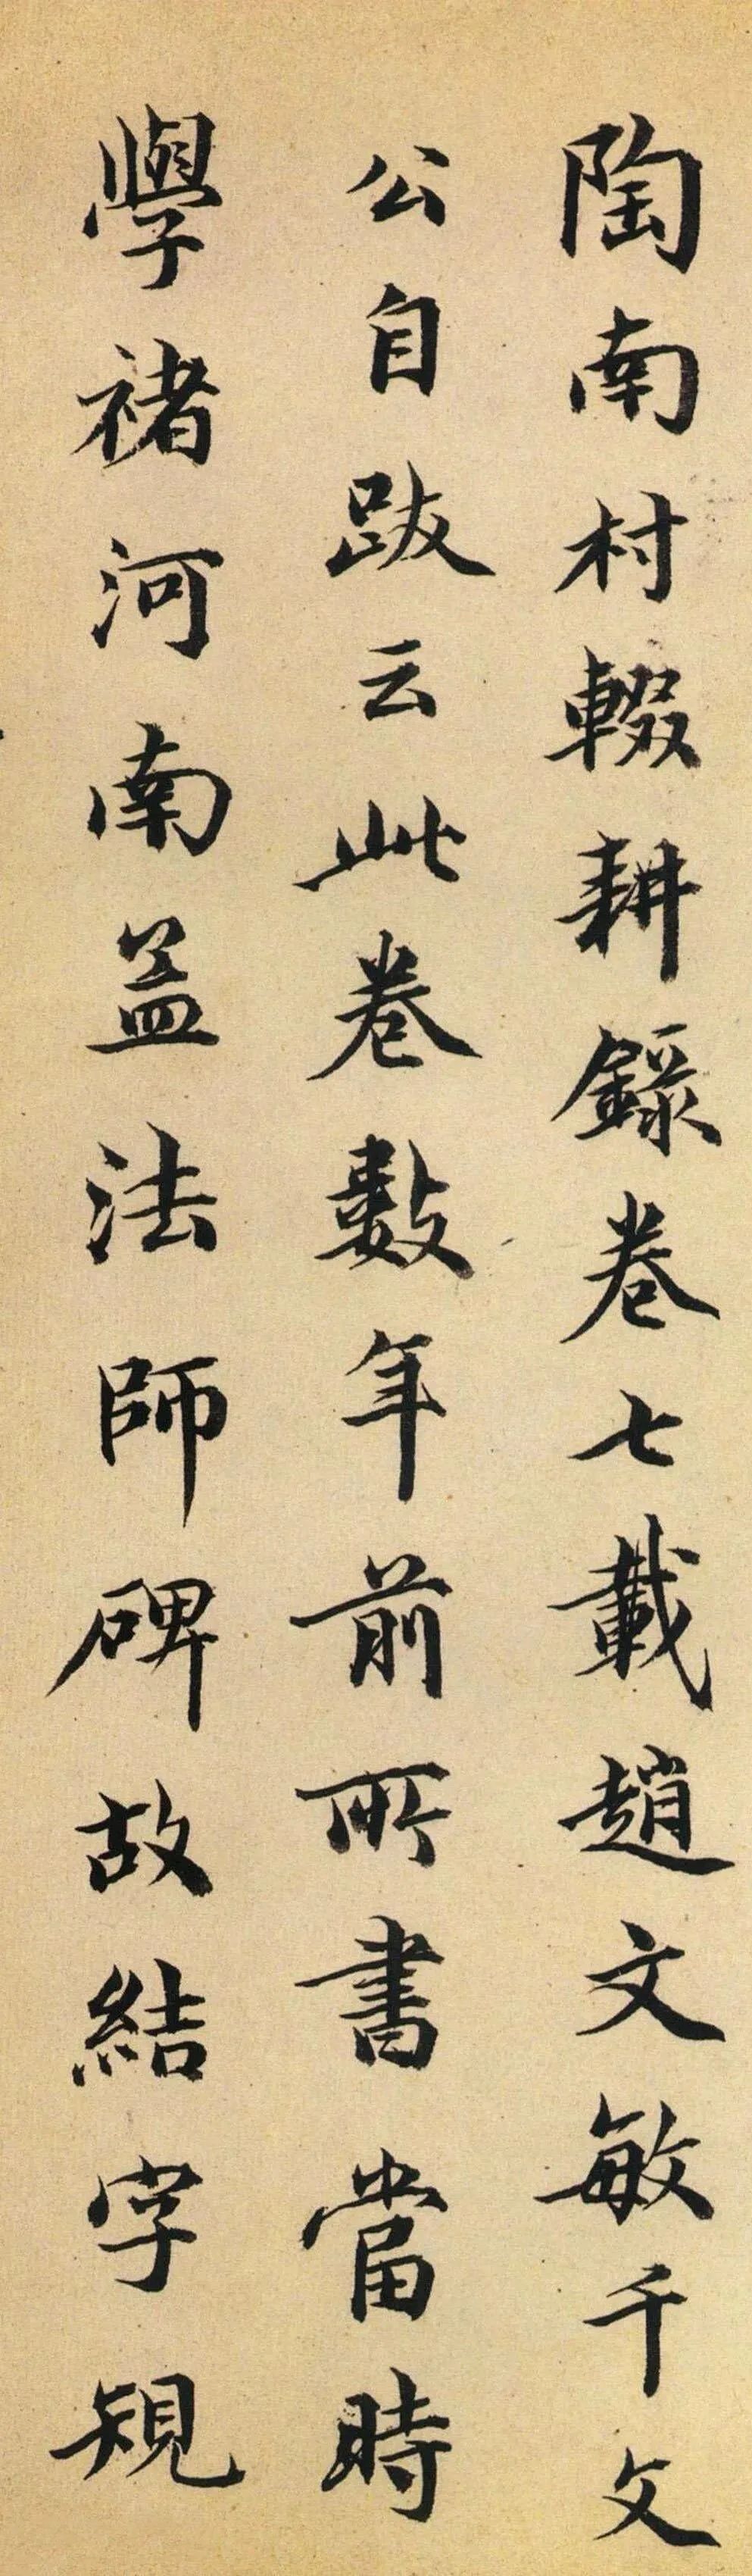 陶南村輟耕錄卷七載趙文敏千文
公自跋云此卷數年前所書當時
學褚河南孟法師碑故結字規